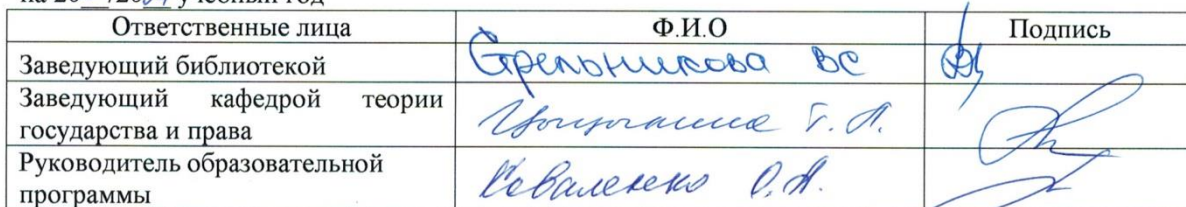 Ответственные лица Ф.И.О Подпись
Заведующий библиотекой Стрельникова ВС
Заведующий кафедрой теории
государства и права Г. А.
Руководитель образовательной
программы Коваленко О.А.